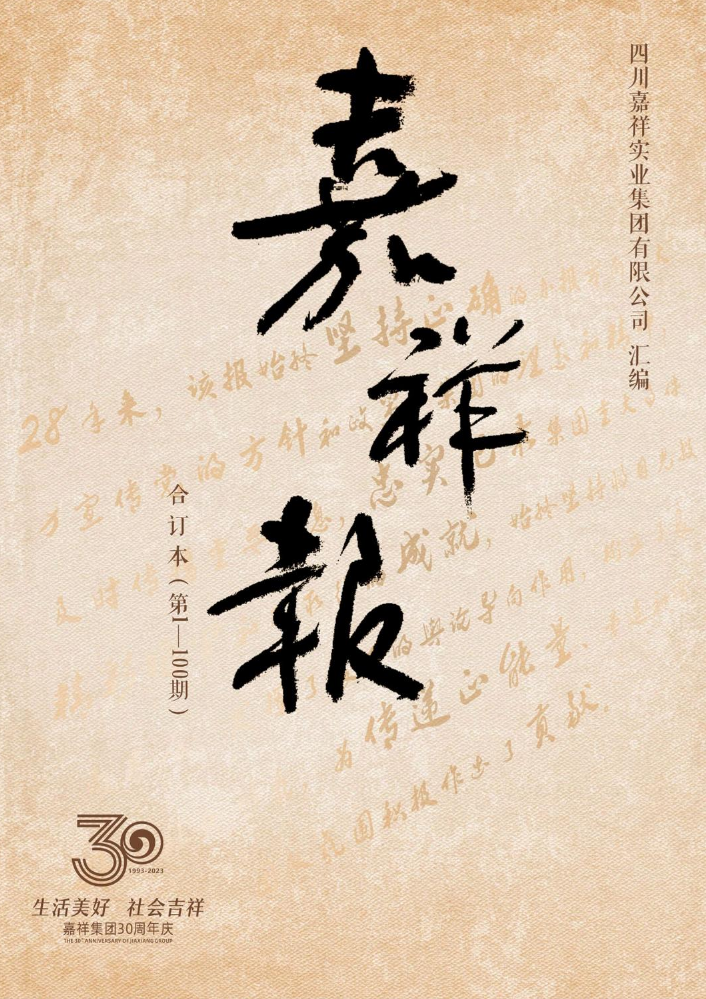 四川嘉祥实业集团有限公司 汇编
嘉祥報
合订本(第1—100期)
28年来，该报始终坚持正确的
宣传党的方针和政 集团的理念和
及时传 重 忠实 录集团重大事件
成就，始终坚持
的舆论导向作用，
为传递正能量、
氛围积极作出了贡献.
30
1993-2023
生活美好 社会吉祥
嘉祥集团30周年庆
THE 30TH ANNIVERSARY OF JIAXIANG GROUP